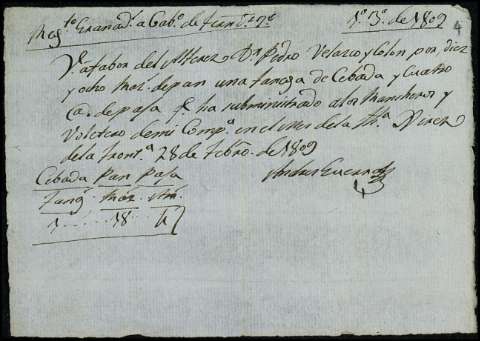 Reg.to Granad.s a Cab.o de Fern.do 7.o 1.o 3.o de 1809
4
V.e a fabor del Alferez D.n Pedro Velazco y Colon por diez
y ocho Rac.s de pan una fanega de Cebada y Cuatro
de paja q.e ha subministrado a los Rancheros y
de mi Comp.a en el mes de la f.ha Xerez
de la Front.a 28 de Febro. de 1809
Cebada Pan Paja
Fang.s Rac.s
1 18 4